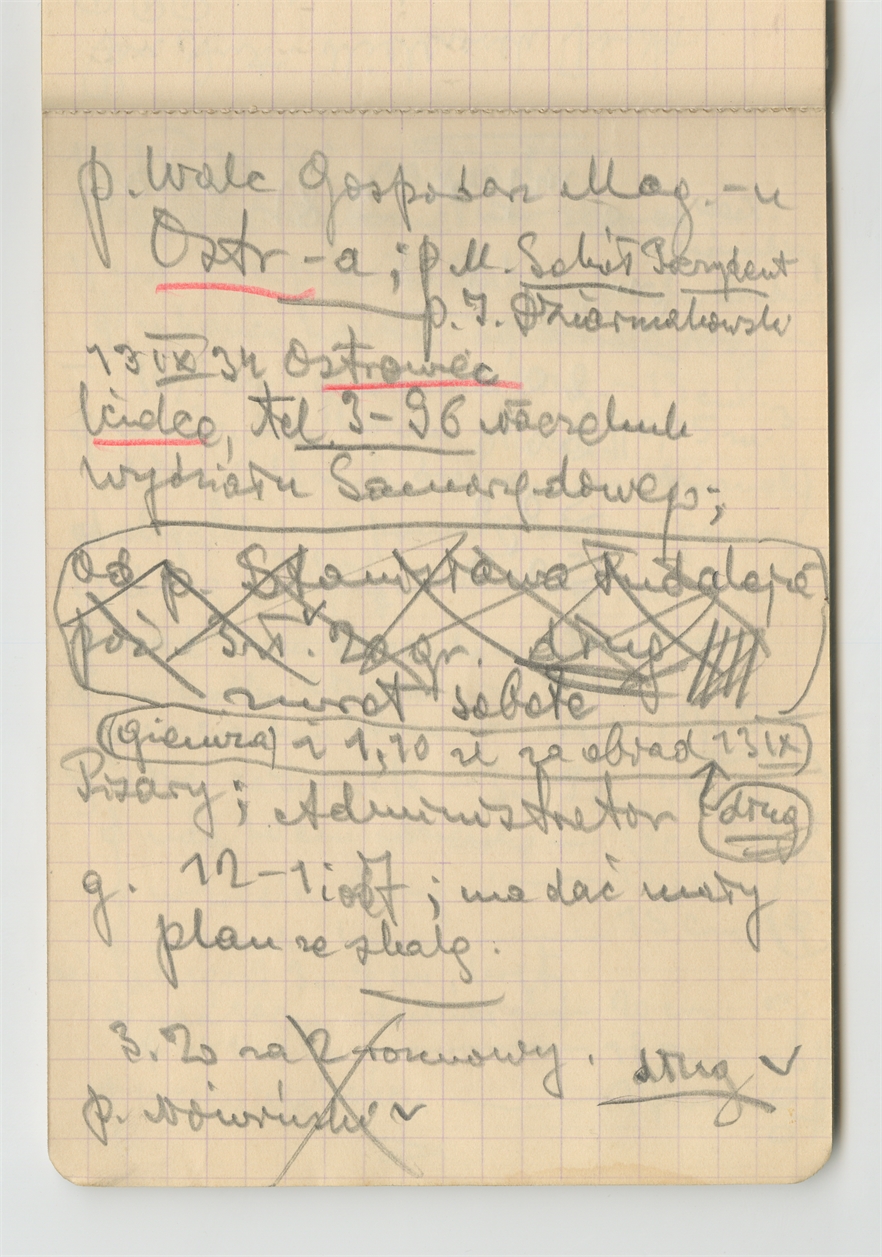 p. Walc Gospodarz Mag.-u
Ostr-a; p. M. Sobół Prezydent
p. J. Dziarmakowski
13 IX 34 Ostrowiec
Kielce, tel. 3-96 naczelnik
wydziału Samorządowego;
od p. Stanisława
poż. 3 zł. 20 gr. dług
zwrot sobota
(gienwza) i 1,10 zł za obiad 13 IX)
Pisary; Administrator dług
g. 12-1 i od 7; ma dać mały
plan ze skalą.
3.20 za 2 rozmowy. dług
p.